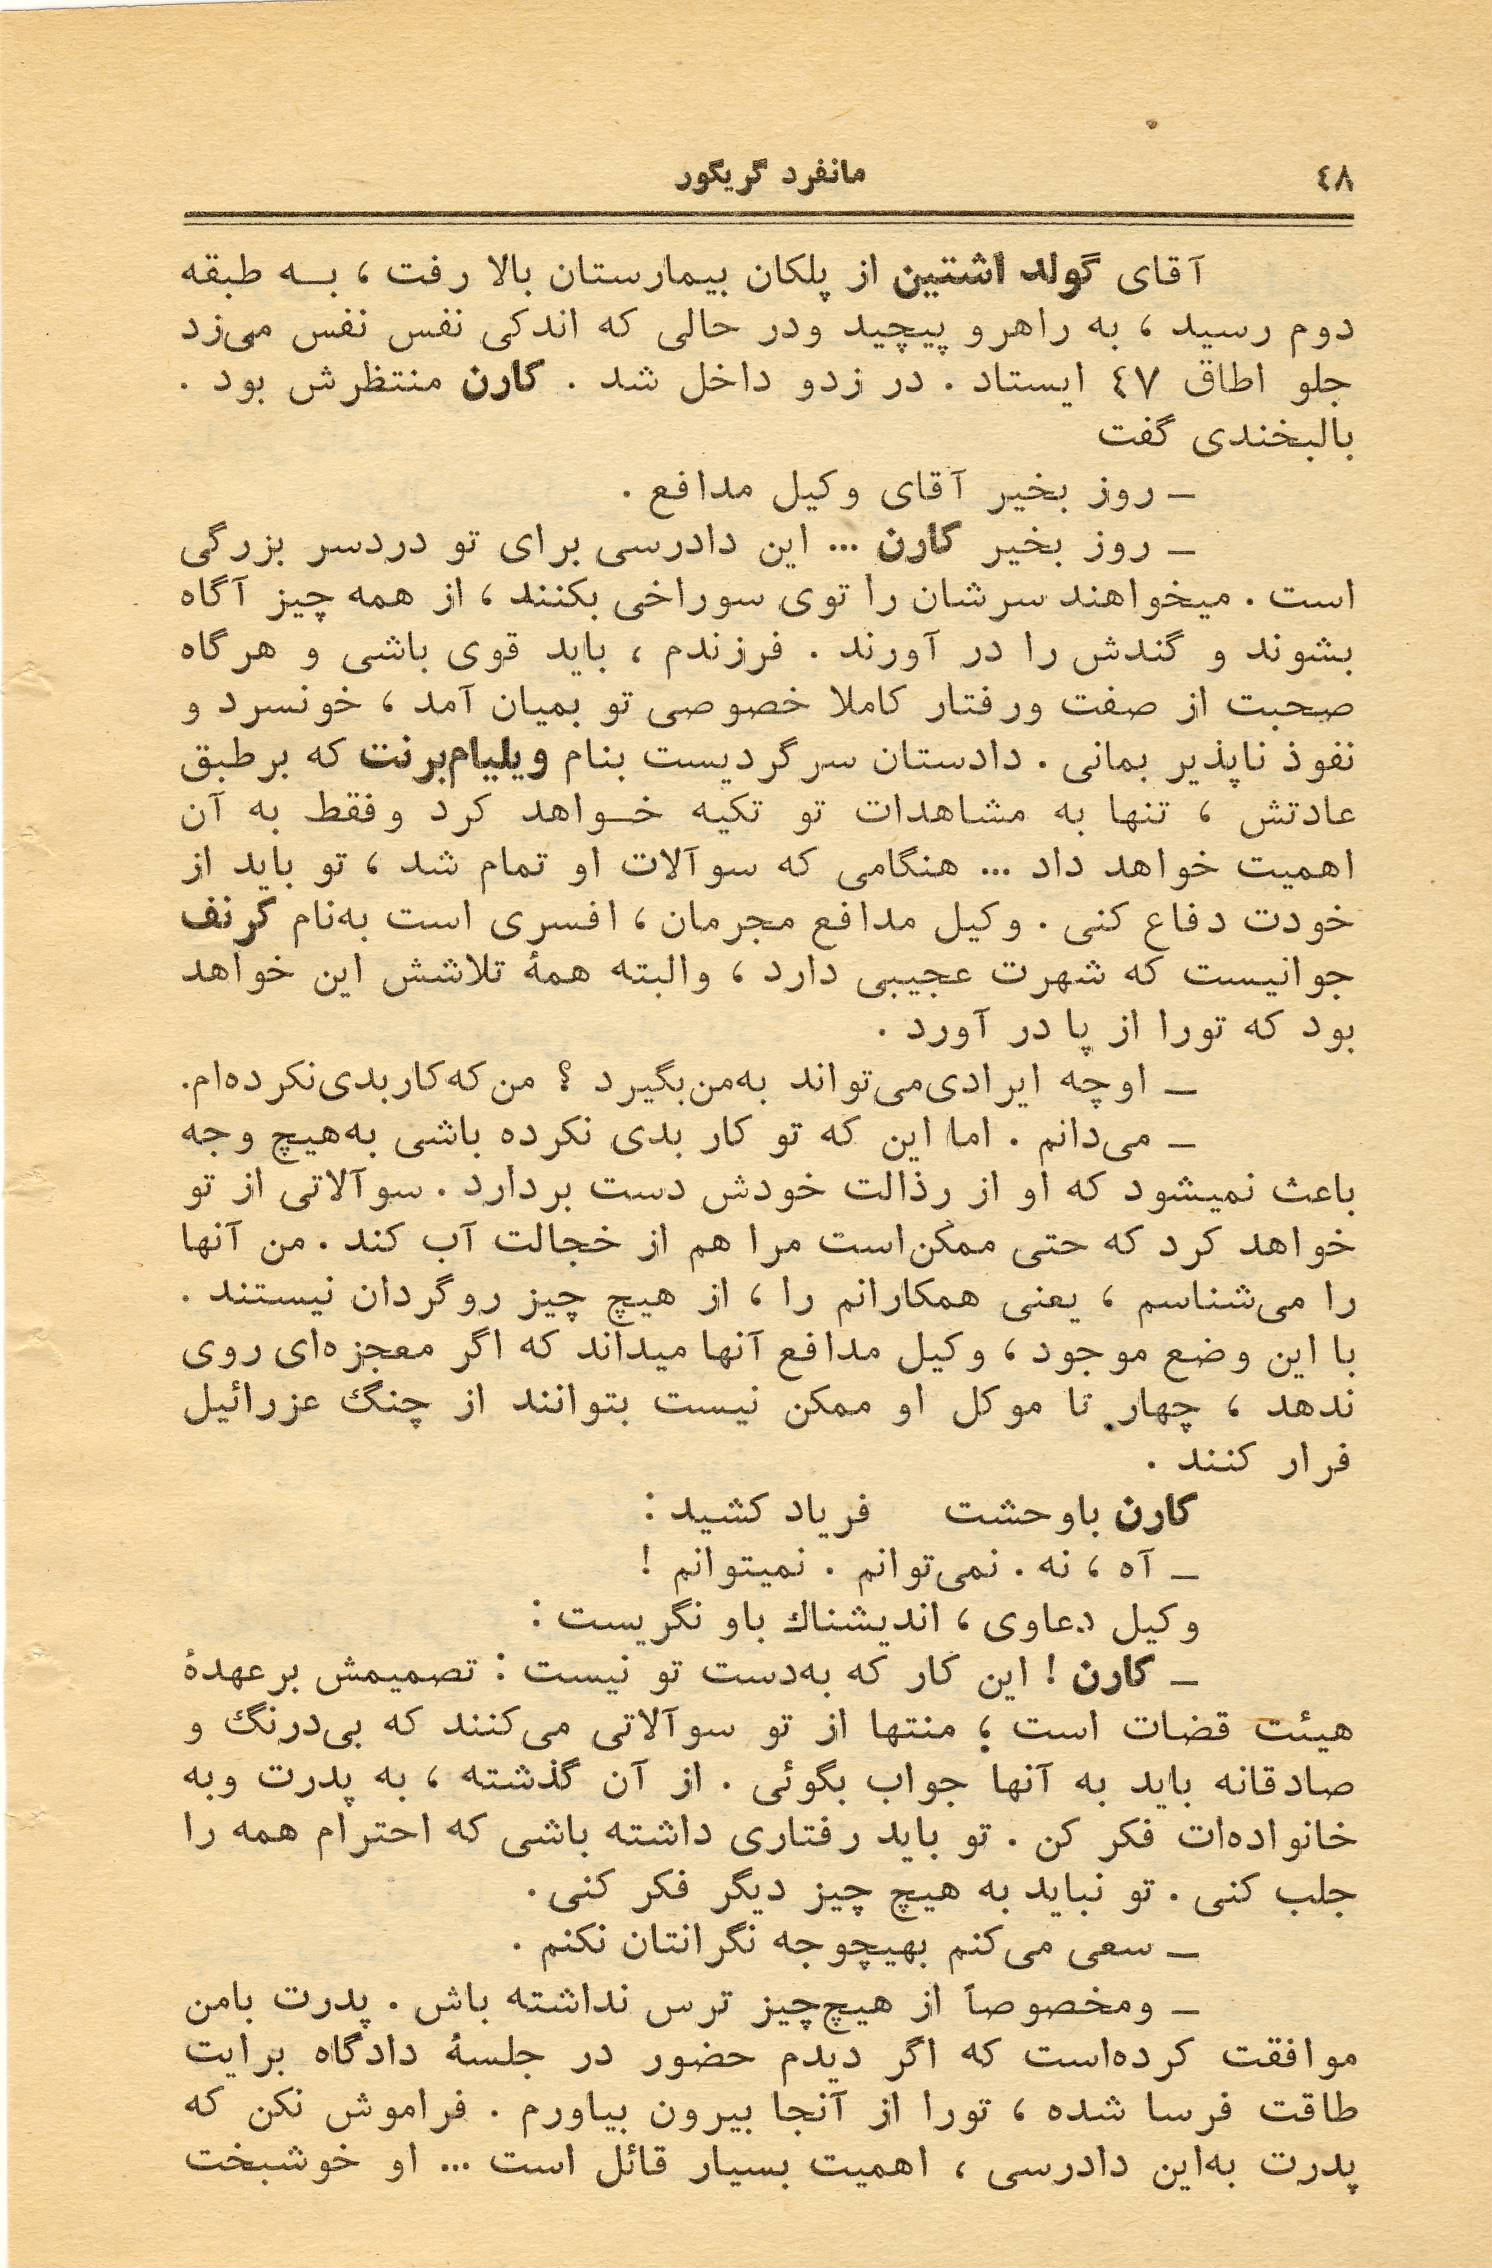 ۴۸
مانفرد گریگور
آقای گولد اشتین از پلکان بیمارستان بالا رفت ، بـــه طبقه
دوم رسید ، به راهرو پیچید ودر حالی که اندکی نفس نفس می‌زد
جلو اطاق ۴۷ ایستاد . در زدو داخل شد . کارن منتظرش بود .
بالبخندی گفت
ـ روز بخیر آقای وکیل مدافع .
ـ روز بخیر کارن ... این دادرسی برای تو دردسر بزرگی
است . میخواهند سرشان را توی سوراخی بکنند ، از همه چیز آگاه
بشوند و گندش را در آورند . فرزندم ، باید قوی باشی و هرگاه
صحبت از صفت ورفتار کاملا خصوصی تو بمیان آمد ، خونسرد و
نفوذ ناپذیر بمانی . دادستان سرگردیست بنام ویلیام‌برنت که برطبق
عادتش ، تنها به مشاهدات تو تکیه خــواهد کرد وفقط به آن
اهمیت خواهد داد ... هنگامی که سوآلات او تمام شد ، تو باید از
خودت دفاع کنی . وکیل مدافع مجرمان ، افسری است به‌نام گرنف
جوانیست که شهرت عجیبی دارد ، والبته همهٔ تلاشش این خواهد
بود که تورا از پا در آورد .
ـ اوچه ایرادی‌می‌تواند به‌من‌بگیرد ؟ من‌که‌کاربدی‌نکرده‌ام.
ـ می‌دانم . اما این که تو کار بدی نکرده باشی به‌هیچ وجه
باعث نمیشود که او از رذالت خودش دست بردارد . سوآلاتی از تو
خواهد کرد که حتی ممکن‌است مرا هم از خجالت آب کند . من آنها
را می‌شناسم ، یعنی همکارانم را ، از هیچ چیز روگردان نیستند .
با این وضع موجود ، وکیل مدافع آنها میداند که اگر معجزه‌ای روی
ندهد ، چهار تا موکل او ممکن نیست بتوانند از چنگ عزرائیل
فرار کنند .
کارن باوحشت فریاد کشید :
ـ آه ، نه . نمی‌توانم . نمیتوانم !
وکیل دعاوی ، اندیشناك باو نگریست :
ـ کارن ! این کار که به‌دست تو نیست : تصمیمش برعهدهٔ
هیئت قضات است ؛ منتها از تو سوآلاتی می‌کنند که بی‌درنگ و
صادقانه باید به آنها جواب بگوئی . از آن گذشته ، به پدرت وبه
خانواده‌ات فکر کن . تو باید رفتاری داشته باشی که احترام همه را
جلب کنی . تو نباید به هیچ چیز دیگر فکر کنی .
ـ سعی می‌کنم بهیچوجه نگرانتان نکنم .
ـ ومخصوصاً از هیچ‌چیز ترس نداشته باش . پدرت بامن
موافقت کرده‌است که اگر دیدم حضور در جلسهٔ دادگاه برایت
طاقت فرسا شده ، تورا از آنجا بیرون بیاورم . فراموش نکن که
پدرت به‌این دادرسی ، اهمیت بسیار قائل است ... او خوشبخت